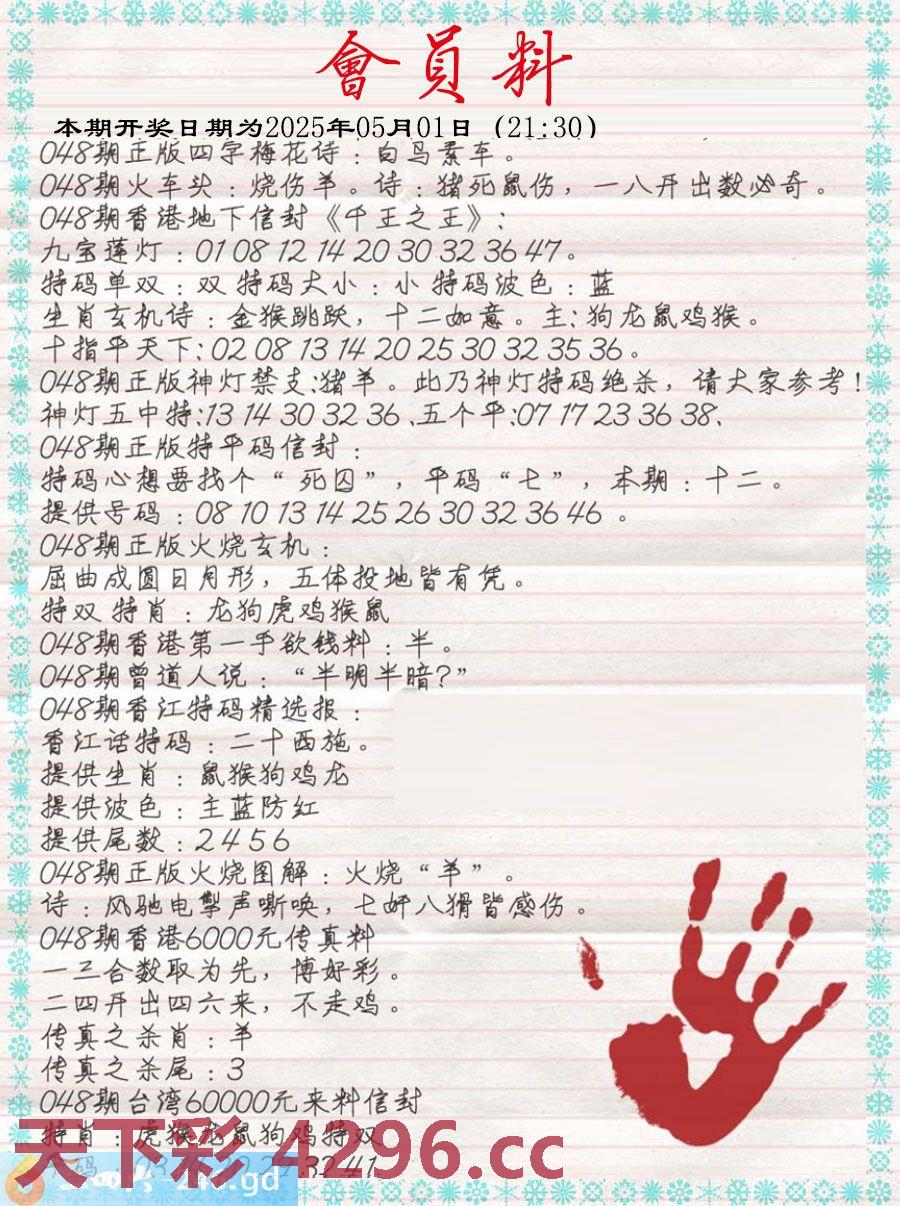 會員料
本期开奖日期为2025年05月01日（21:30）
048期正版四字梅花诗：白鸟素车。
048期火车头：烧伤羊。诗：猪死鼠伤，一八开出数必奇。
048期香港地下信封《千王之王》：
九宝莲灯：01 08 12 14 20 30 32 36 47。
特码单双：双 特码大小：小 特码波色：蓝
生肖玄机诗：金猴跳跃，十二如意。主：狗龙鼠鸡猴。
十指平天下：02 08 13 14 20 25 30 32 35 36。
048期正版神灯禁支：猪羊。此乃神灯特码绝杀，请大家参考！
神灯五中特：13 14 30 32 36、五个平：07 17 23 36 38、
048期正版特平码信封：
特码心想要找个“死囚”，平码“七”，本期：十二。
提供号码：08 10 13 14 25 26 30 32 36 46 。
048期正版火烧玄机：
屈曲成圆日月形，五体投地皆有凭。
特双 特肖：龙狗虎鸡猴鼠
048期香港第一手欲钱料：半。
048期曾道人说：“半明半暗?”
048期香江特码精选报：
香江话特码：二十西施。
提供生肖：鼠猴狗鸡龙
提供波色：主蓝防红
提供尾数：2 4 5 6
048期正版火烧图解：火烧“羊”。
诗：风驰电掣声嘶唤，七奸八猾皆感伤。
048期香港6000元传真料
一三合数取为先，博好彩。
二四开出四六来，不走鸡。
传真之杀肖：羊
传真之杀尾：3
048期台湾60000元来料信封
特肖：虎猴龙鼠狗鸡特双
天下彩 4296.cc
32 41.